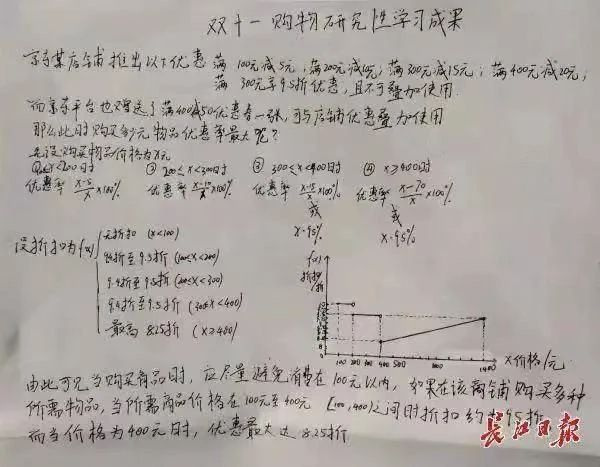 双十一购物研究性学习成果
京东某店铺推出以下优惠 满100元减5元;满200元减10元;满300元减15元;满400元减20元;
满300元享9.5折优惠,且不可叠加使用.
而京东平台也赠送了满400减50优惠卷一张,可与店铺优惠叠加使用
那么此时购买多少元物品优惠率最大呢?
设购买物品价格为x元
<x<200时 ② 200≤x<300时 ③ 300≤x<400时 ④ x≥400时
优惠率 x-5/x ×100% 优惠率 x-10/x ×100% 优惠率 x-15/x ×100% 优惠率 x-70/x ×100%
或 或
x·95% x·95%
设折扣为f(x)
无折扣 (x<100)
9.5折 (100≤x<200)
9.4折至9.5折 (200≤x<300)
9.4折至9.5折 (300≤x<400)
最高 8.25折 (x≥400)
f(x)
折扣/折
100 200 300 400 500 1400
x价格/元
由此可见当购买商品时,应尽量避免消费在100元以内,如果在该商铺购买多种
所需物品,当所需商品价格在100元至400元 [100,400)之间时折扣约为9.5折
而当价格为400元时,优惠最大达8.25折
长江日报